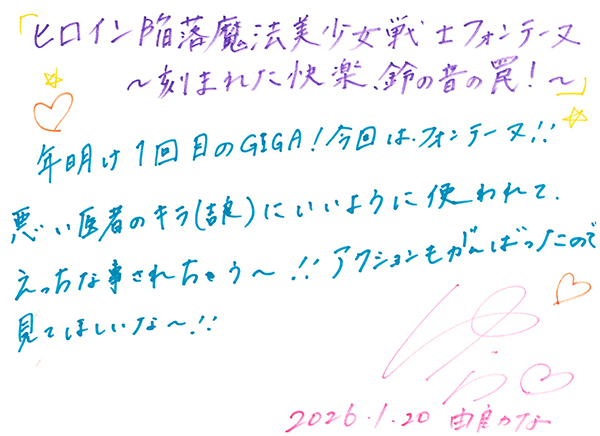 「ヒロイン陥落魔法美少女戦士フォンテーヌ
～刻まれた快楽、鈴の音の罠！～」
年明け1回目のGIGA！今回は、フォンテーヌ!!
悪い医者のキラ(吉良)にいいように使われて、
えっちな事されちゃう～!!アクションもがんばったので
見てほしいな～!!
2026.1.20 由良かな